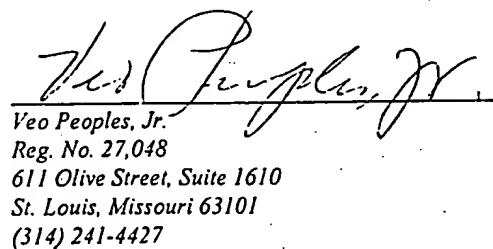 Veo Peoples, Jr.
Veo Peoples, Jr.
Reg. No. 27,048
611 Olive Street, Suite 1610
St. Louis, Missouri 63101
(314) 241-4427